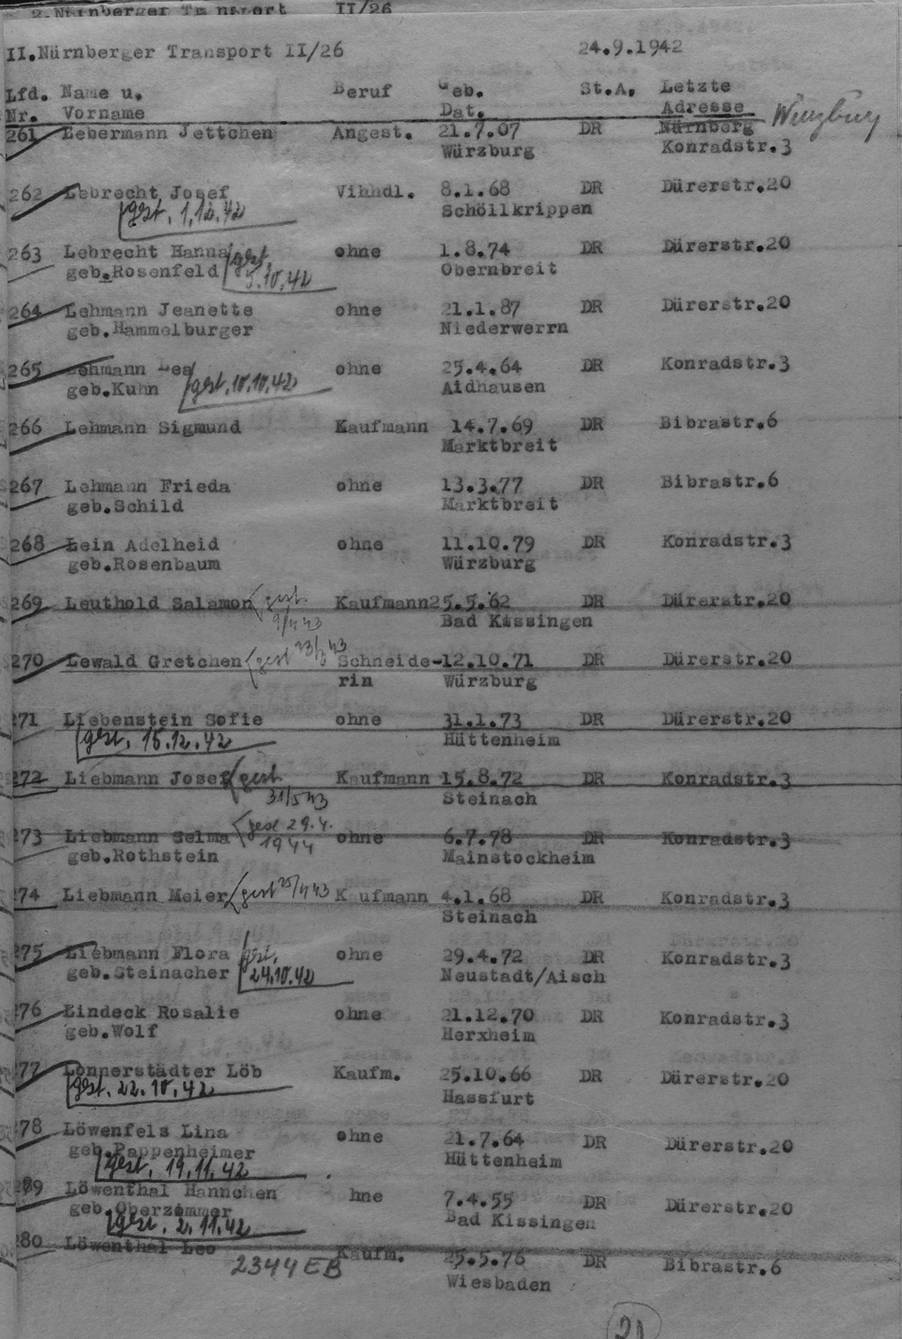 2.Nürnberger Transport II/26
II.Nürnberger Transport II/26 24.9.1942
Lfd. Name u. Beruf Geb. St.A. Letzte
Nr. Vorname Dat. Adresse Würzburg
261 Lebermann Jettchen Angest. 21.7.07 DR Nürnberg
Würzburg Konradstr.3
262 Lebrecht Josef Vihhdl. 8.1.68 DR Dürerstr.20
gest. 1.12.42 Schöllkrippen
263 Lebrecht Hanna gest. ohne 1.8.74 DR Dürerstr.20
geb.Rosenfeld 5.10.42 Obernbreit
264 Lehmann Jeanette ohne 21.1.87 DR Dürerstr.20
geb.Hammelburger Niederwerrn
265 Lehmann Lea ohne 25.4.64 DR Konradstr.3
geb.Kuhn gest.10.10.42 Aidhausen
266 Lehmann Sigmund Kaufmann 14.7.69 DR Bibrastr.6
Marktbreit
267 Lehmann Frieda ohne 13.3.77 DR Bibrastr.6
geb.Schild Marktbreit
268 Lein Adelheid ohne 11.10.79 DR Konradstr.3
geb.Rosenbaum Würzburg
269 Leuthold Salamon gest. Kaufmann25.5.62 DR Dürerstr.20
9/4 43 Bad Kissingen
270 Lewald Gretchen gest 23/3 43 Schneide-12.10.71 DR Dürerstr.20
rin Würzburg
271 Liebenstein Sofie ohne 31.1.73 DR Dürerstr.20
gest. 15.12.42 Hüttenheim
272 Liebmann Josef gest Kaufmann 15.8.72 DR Konradstr.3
31/5 43 Steinach
273 Liebmann Selma gest 29.4. ohne 6.7.78 DR Konradstr.3
geb.Rothstein 1944 Mainstockheim
274 Liebmann Meier gest 25/4 43 Kaufmann 4.1.68 DR Konradstr.3
Steinach
275 Liebmann Flora gest. ohne 29.4.72 DR Konradstr.3
geb.Steinacher 24.10.42 Neustadt/Aisch
276 Lindeck Rosalie ohne 21.12.70 DR Konradstr.3
geb.Wolf Herxheim
277 Lonnerstädter Löb Kaufm. 25.10.66 DR Dürerstr.20
gest. 22.10.42 Hassfurt
278 Löwenfels Lina ohne 21.7.64 DR Dürerstr.20
geb.Pappenheimer Hüttenheim
gest. 19.11.42
279 Löwenthal Hannchen hne 7.4.55 DR Dürerstr.20
geb.Oberzimmer Bad Kissingen
gest. 2.11.42
280 Löwenthal Leo Kaufm. 25.5.76 DR Bibrastr.6
2344 EB Wiesbaden
21